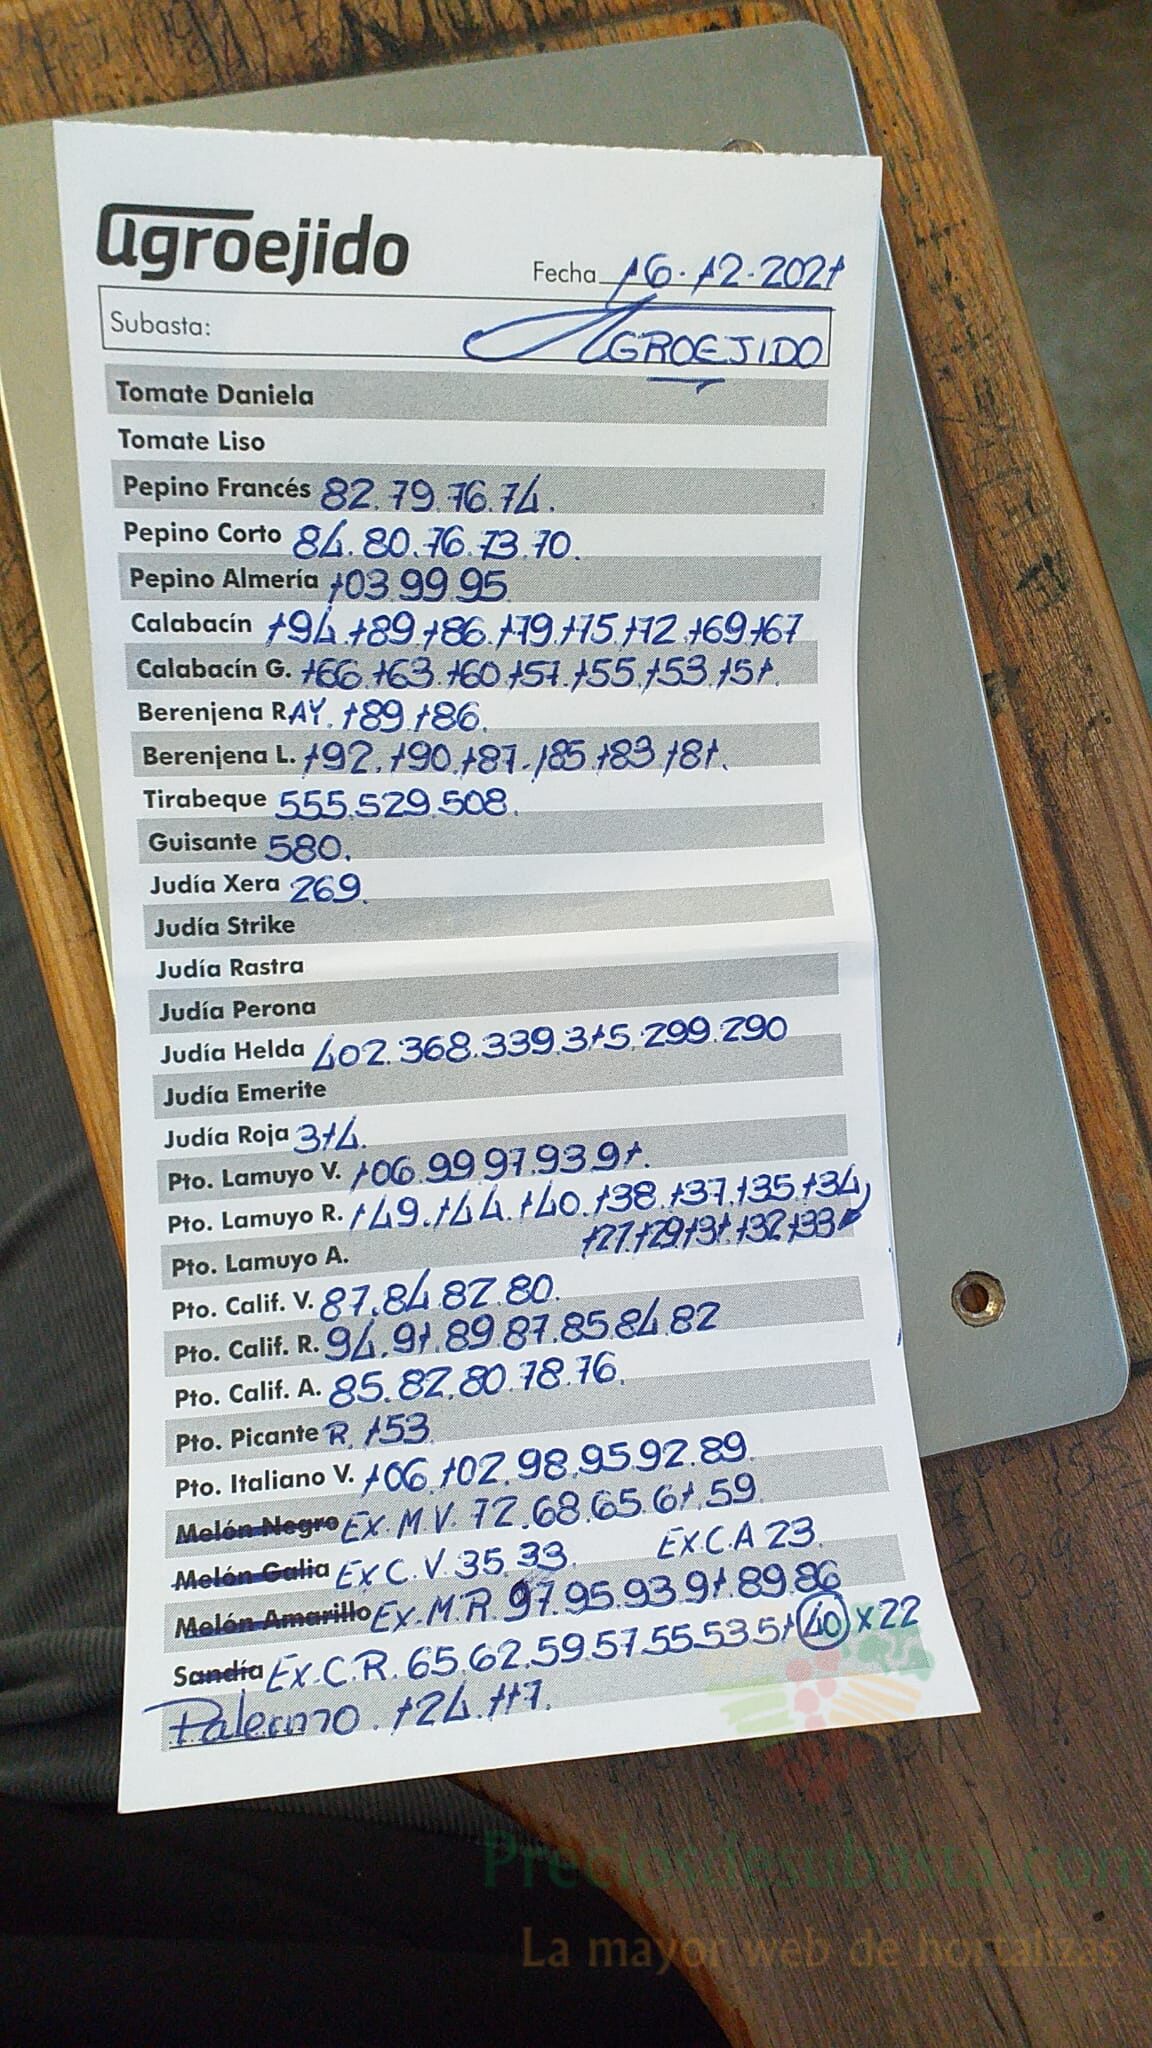 agroejido
Fecha 16-12-2021
Subasta: AGROEJIDO
Tomate Daniela
Tomate Liso
Pepino Francés 82.79.76.74.
Pepino Corto 84.80.76.73.70.
Pepino Almería 103.99.95
Calabacín 194.189.186.179.175.172.169.167
Calabacín G. 166.163.160.157.155.153.151.
Berenjena RAY. 189.186.
Berenjena L. 192.190.187.185.183.181.
Tirabeque 555.529.508.
Guisante 580.
Judía Xera 269.
Judía Strike
Judía Rastra
Judía Perona
Judía Helda 402.368.339.315.299.290
Judía Emerite
Judía Roja 314.
Pto. Lamuyo V. 106.99.97.93.91.
Pto. Lamuyo R. 149.144.140.138.137.135.134
127.129.131.132.133
Pto. Lamuyo A.
Pto. Calif. V. 87.84.82.80.
Pto. Calif. R. 94.91.89.87.85.84.82
Pto. Calif. A. 85.82.80.78.76.
Pto. Picante R. 153.
Pto. Italiano V. 106.102.98.95.92.89.
Melón Negro Ex.M.V. 72.68.65.61.59.
Melón Galia Ex C.V. 35.33. Ex.C.A 23.
Melón Amarillo Ex.M.R. 97.95.93.91.89.86
Sandía Ex.C.R. 65.62.59.57.55.53.51 40 x 22
Palermo. 124.117.
Preciosdesubasta.com
La mayor web de hortalizas